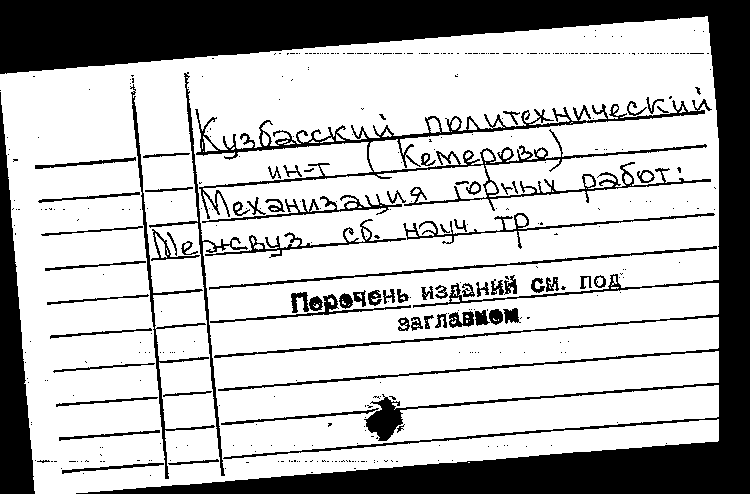 Кузбасский политехнический
ин-т (Кемерово)
Механизация горных работ:
Межвуз. сб. науч. тр.
Перечень изданий см. под
заглавием.